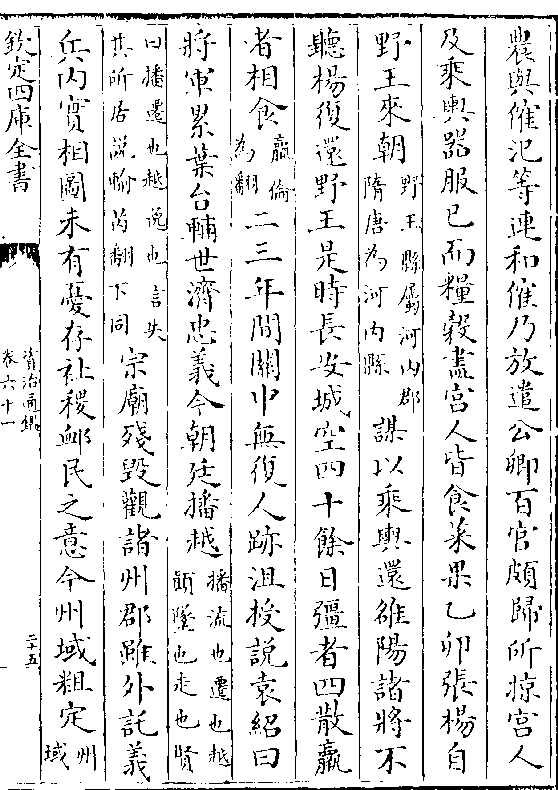 農與傕汜等連和傕乃放遣公卿百官頗歸所掠宮人
及乘輿器服已而糧穀盡宮人皆食菜果乙卯張楊自
野王來朝野王縣屬河內郡隋唐為河內縣謀以乘輿還雒陽諸將不
聽楊復還野王是時長安城空四十餘日彊者四散羸
者相食羸倫為翻二三年間關中無復人跡沮授說袁紹曰
將軍累葉台輔世濟忠義今朝廷播越播流也遷也越顛墜也走也賢
曰播遷也越逸也言失其所居說輸芮翻下同宗廟殘毀觀諸州郡雖外託義
兵內實相圖未有憂存社稷卹民之意今州域粗定州域
欽定四庫全書
資治通鑑
卷六十一
二十五